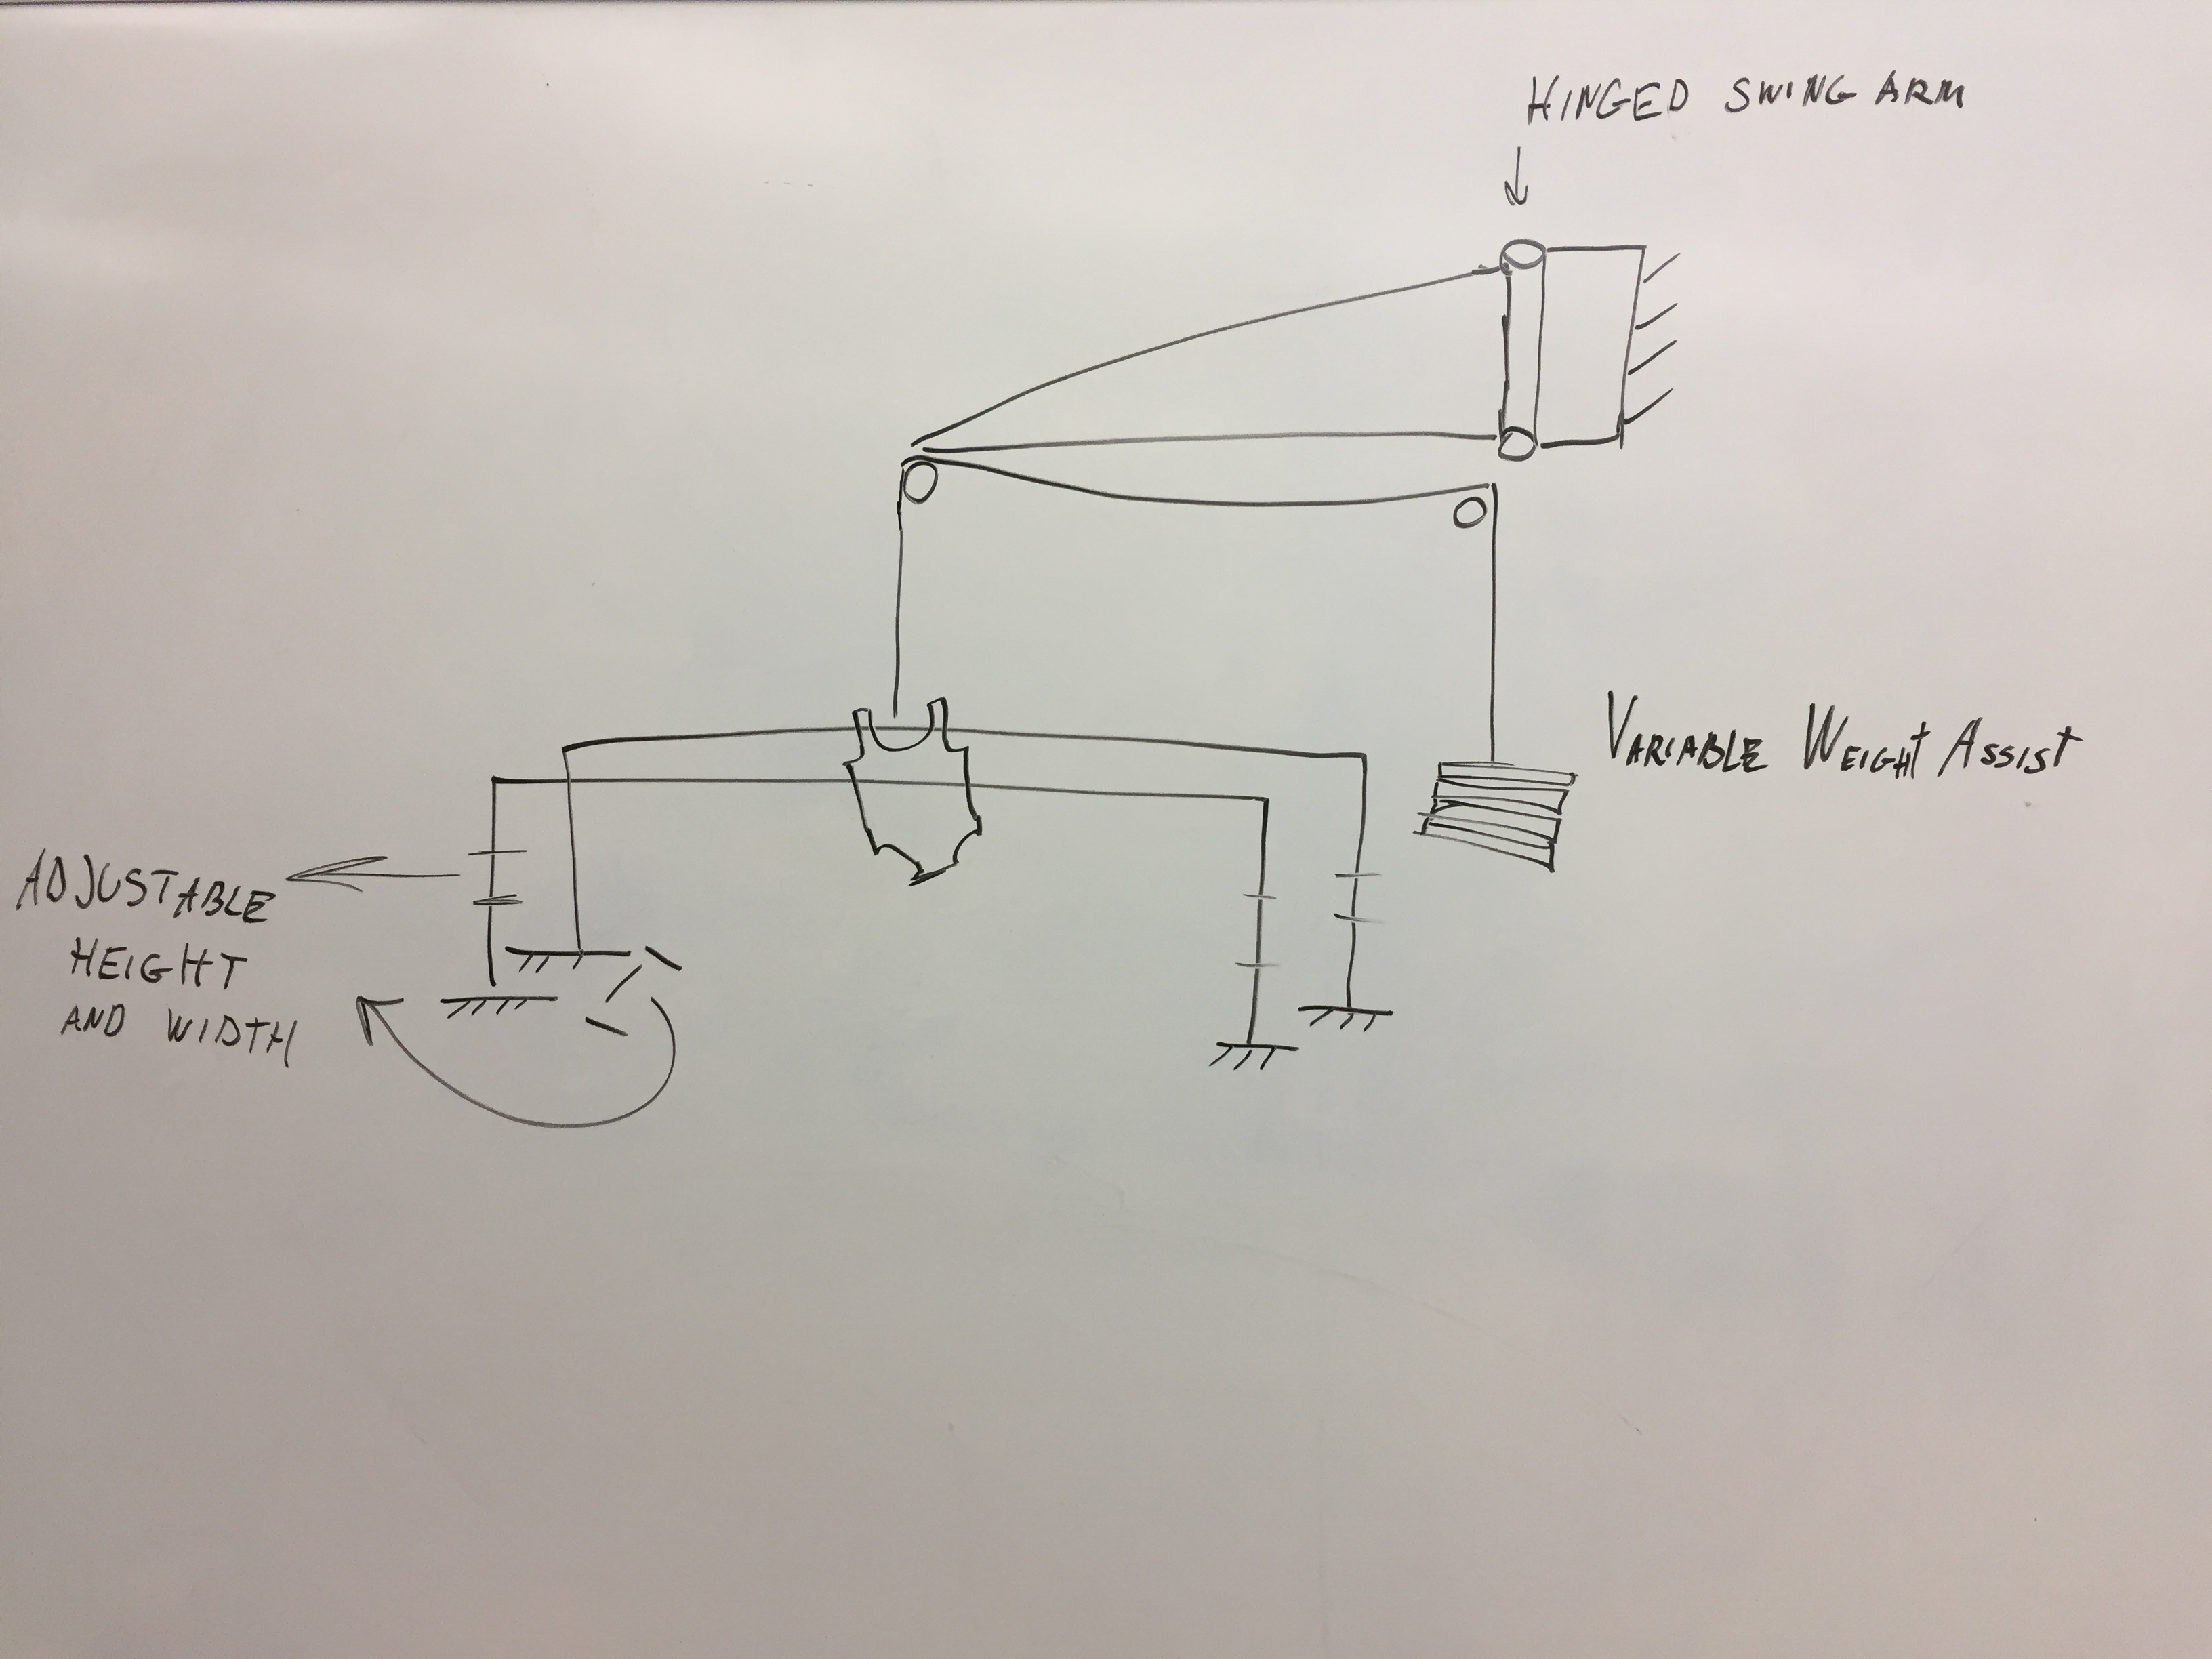 HINGED SWING ARM
VARIABLE WEIGHT ASSIST
ADJUSTABLE
HEIGHT
AND WIDTH